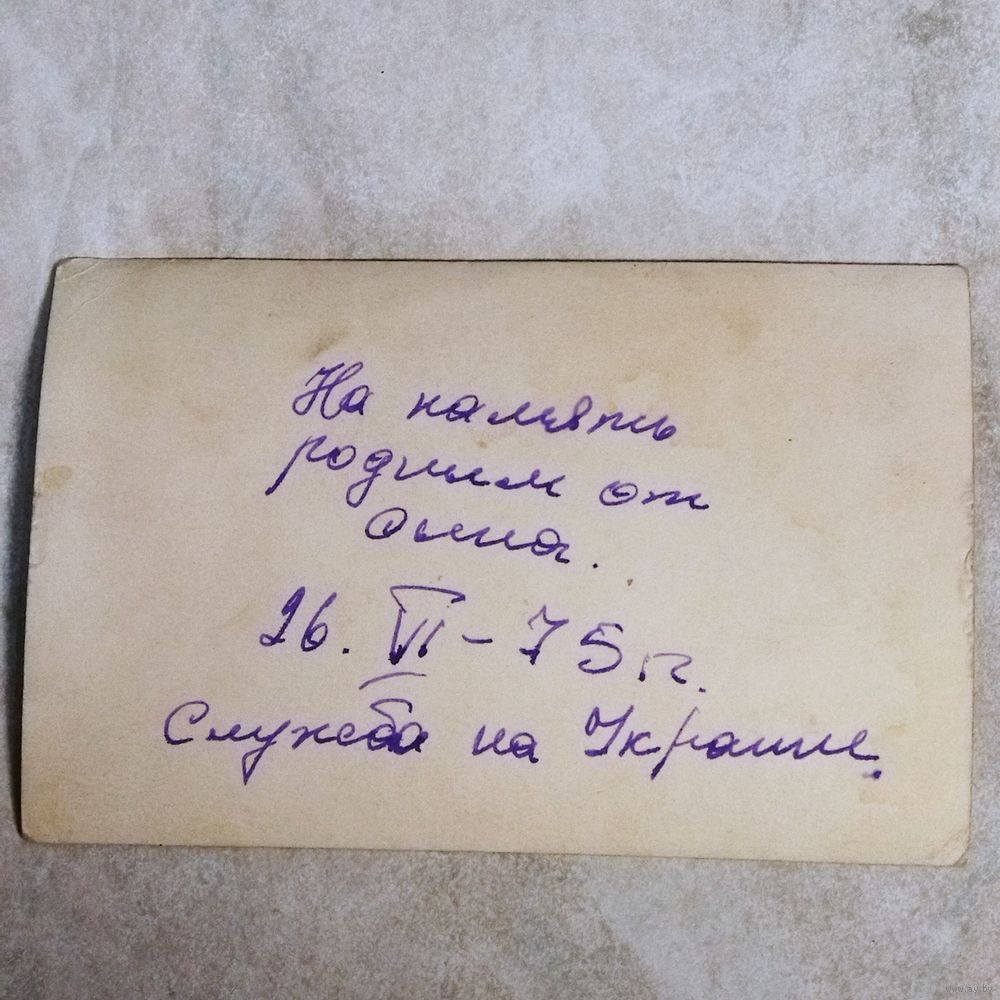 На память
родным от
сына.
26. VI - 75 г.
Служба на Украине.
www.ay.by